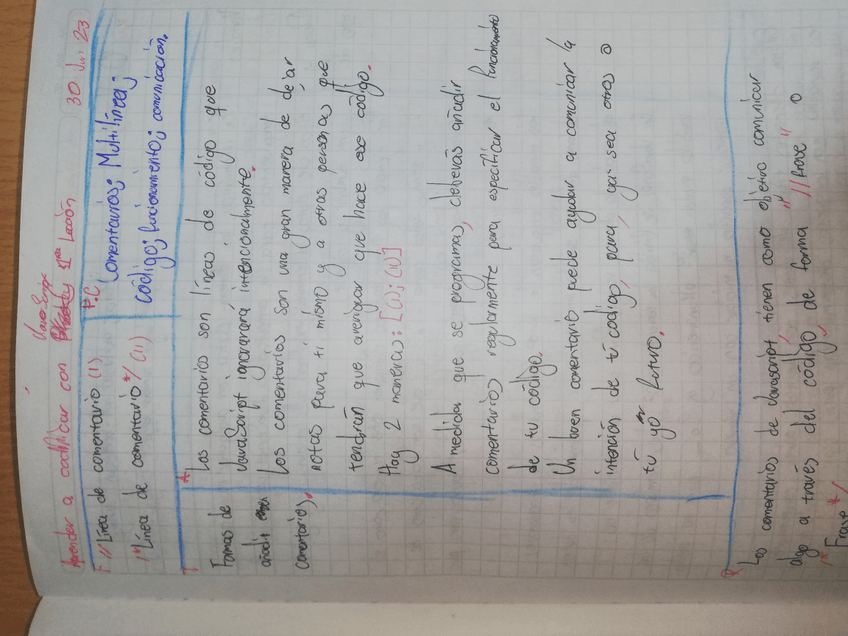 Aprender a codificar con JavaScript 1ra Lección
30 Jun 23
F // Línea de comentario (I)
/* Línea de comentario */ (II)
P.C Comentarios; Multilínea;
código; funcionamiento; comunicación.
T
Formas de
añadir
comentarios.
A
Las comentarios son líneas de código que
JavaScript ignorará intencionalmente.
Los comentarios son una gran manera de dejar
notas para ti mismo y a otras personas que
tendrán que averiguar que hace ese código.
Hay 2 maneras: [(I); (II)]
A medida que se programas, deberás añadir
comentarios regularmente para especificar el funcionamiento
de tu código.
Un buen comentario puede ayudar a comunicar la
intención de tú código, para, ya sea otros o
tú yo futuro.
R
Los comentarios de JavaScript, tienen como objetivo comunicar
algo a través del código, de forma "// frase" o
/* Frase */